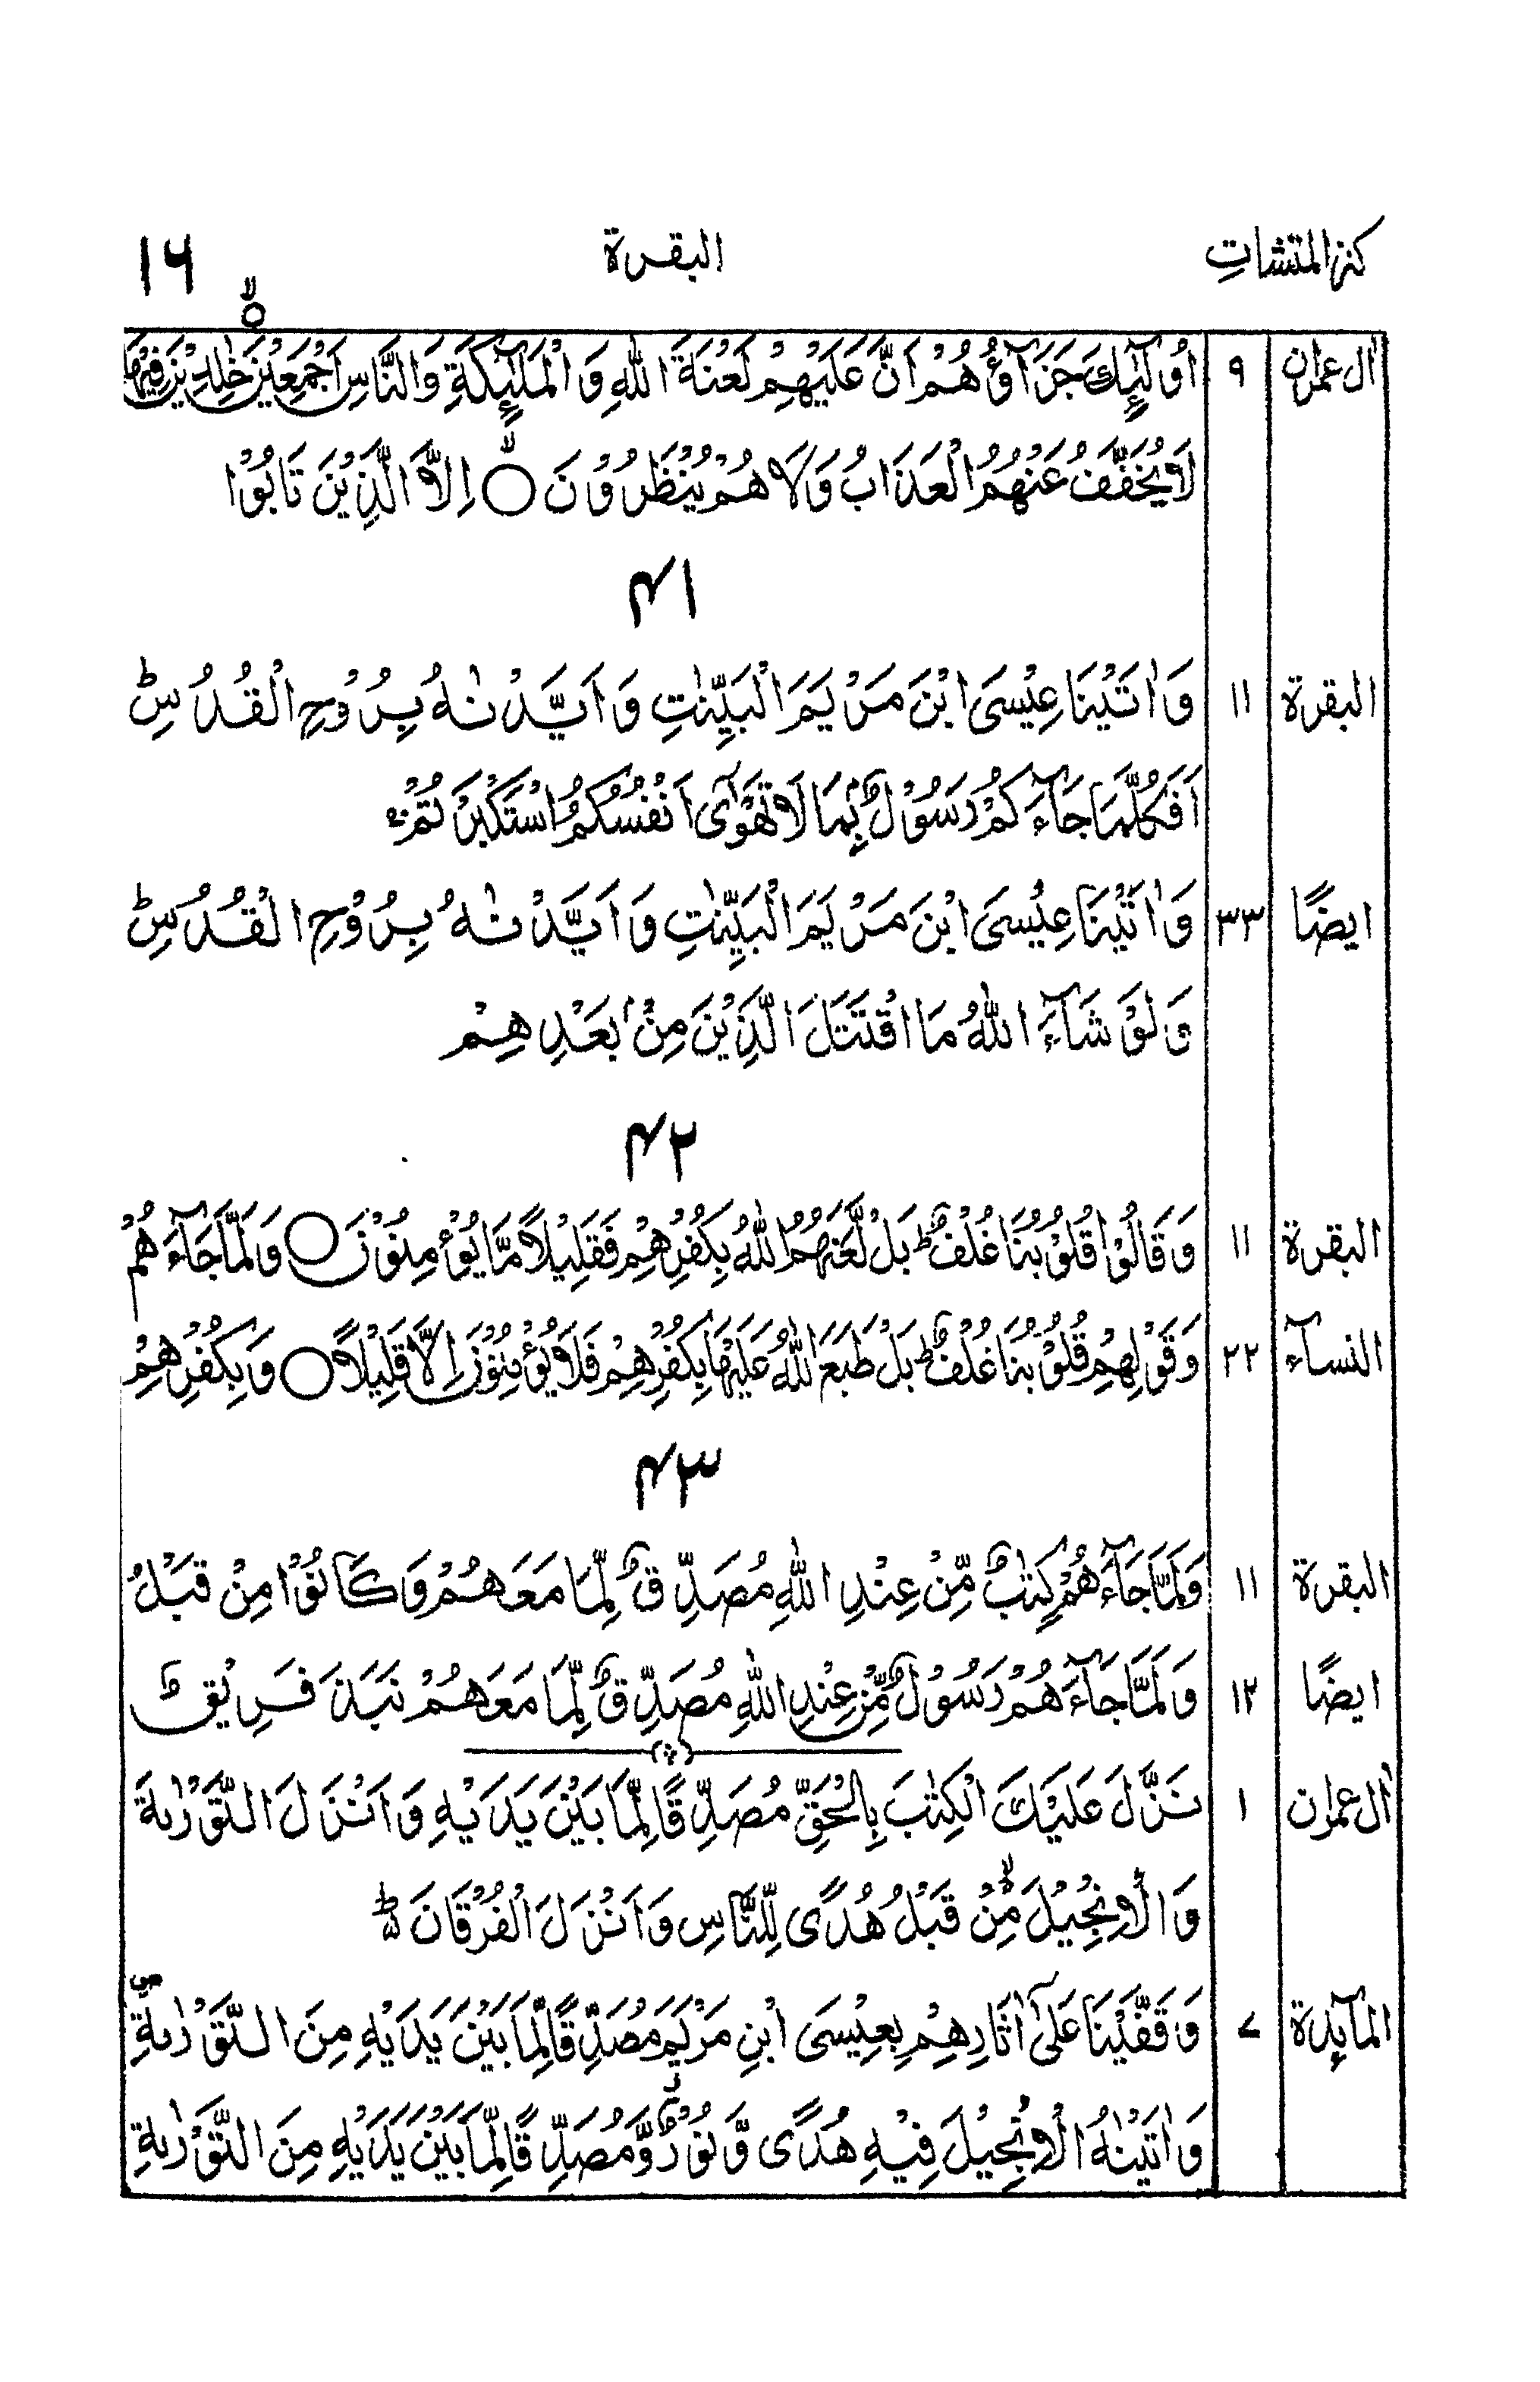 كنز المتشٰبهٰت البقرة ١٦
اٰل عمرٰن ٩ اُولٰٓئِكَ جَزَآؤُهُمْ اَنَّ عَلَيْهِمْ لَعْنَةَ اللّٰهِ وَالْمَلٰٓئِكَةِ وَالنَّاسِ اَجْمَعِيْنَ خٰلِدِيْنَ فِيْهَا ۙ
لَا يُخَفَّفُ عَنْهُمُ الْعَذَابُ وَلَا هُمْ يُنْظَرُوْنَ ۙ○ اِلَّا الَّذِيْنَ تَابُوْا
٤١
البقرة ١١ وَاٰتَيْنَا عِيْسَى ابْنَ مَرْيَمَ الْبَيِّنٰتِ وَاَيَّدْنٰهُ بِرُوْحِ الْقُدُسِ ؕ
اَفَكُلَّمَا جَآءَكُمْ رَسُوْلٌۢ بِمَا لَا تَهْوٰٓى اَنْفُسُكُمُ اسْتَكْبَرْتُمْ ۚ
ايضًا ٣٣ وَاٰتَيْنَا عِيْسَى ابْنَ مَرْيَمَ الْبَيِّنٰتِ وَاَيَّدْنٰهُ بِرُوْحِ الْقُدُسِ ؕ
وَلَوْ شَآءَ اللّٰهُ مَا اقْتَتَلَ الَّذِيْنَ مِنْۢ بَعْدِهِمْ
٤٢
البقرة ١١ وَقَالُوْا قُلُوْبُنَا غُلْفٌ ؕ بَلْ لَّعَنَهُمُ اللّٰهُ بِكُفْرِهِمْ فَقَلِيْلًا مَّا يُؤْمِنُوْنَ ○ وَلَمَّا جَآءَهُمْ
النسآء ٢٢ وَقَوْلِهِمْ قُلُوْبُنَا غُلْفٌ ؕ بَلْ طَبَعَ اللّٰهُ عَلَيْهَا بِكُفْرِهِمْ فَلَا يُؤْمِنُوْنَ اِلَّا قَلِيْلًا ○ وَبِكُفْرِهِمْ
٤٣
البقرة ١١ وَلَمَّا جَآءَهُمْ كِتٰبٌ مِّنْ عِنْدِ اللّٰهِ مُصَدِّقٌ لِّمَا مَعَهُمْ وَكَانُوْا مِنْ قَبْلُ
ايضًا ١٢ وَلَمَّا جَآءَهُمْ رَسُوْلٌ مِّنْ عِنْدِ اللّٰهِ مُصَدِّقٌ لِّمَا مَعَهُمْ نَبَذَ فَرِيْقٌ
اٰل عمرٰن ١ نَزَّلَ عَلَيْكَ الْكِتٰبَ بِالْحَقِّ مُصَدِّقًا لِّمَا بَيْنَ يَدَيْهِ وَاَنْزَلَ التَّوْرٰىةَ
وَالْاِنْجِيْلَ ۙ مِنْ قَبْلُ هُدًى لِّلنَّاسِ وَاَنْزَلَ الْفُرْقَانَ ؕ
المآئدة ٧ وَقَفَّيْنَا عَلٰٓى اٰثَارِهِمْ بِعِيْسَى ابْنِ مَرْيَمَ مُصَدِّقًا لِّمَا بَيْنَ يَدَيْهِ مِنَ التَّوْرٰىةِ ۪
وَاٰتَيْنٰهُ الْاِنْجِيْلَ فِيْهِ هُدًى وَّنُوْرٌ ۙ وَّمُصَدِّقًا لِّمَا بَيْنَ يَدَيْهِ مِنَ التَّوْرٰىةِ